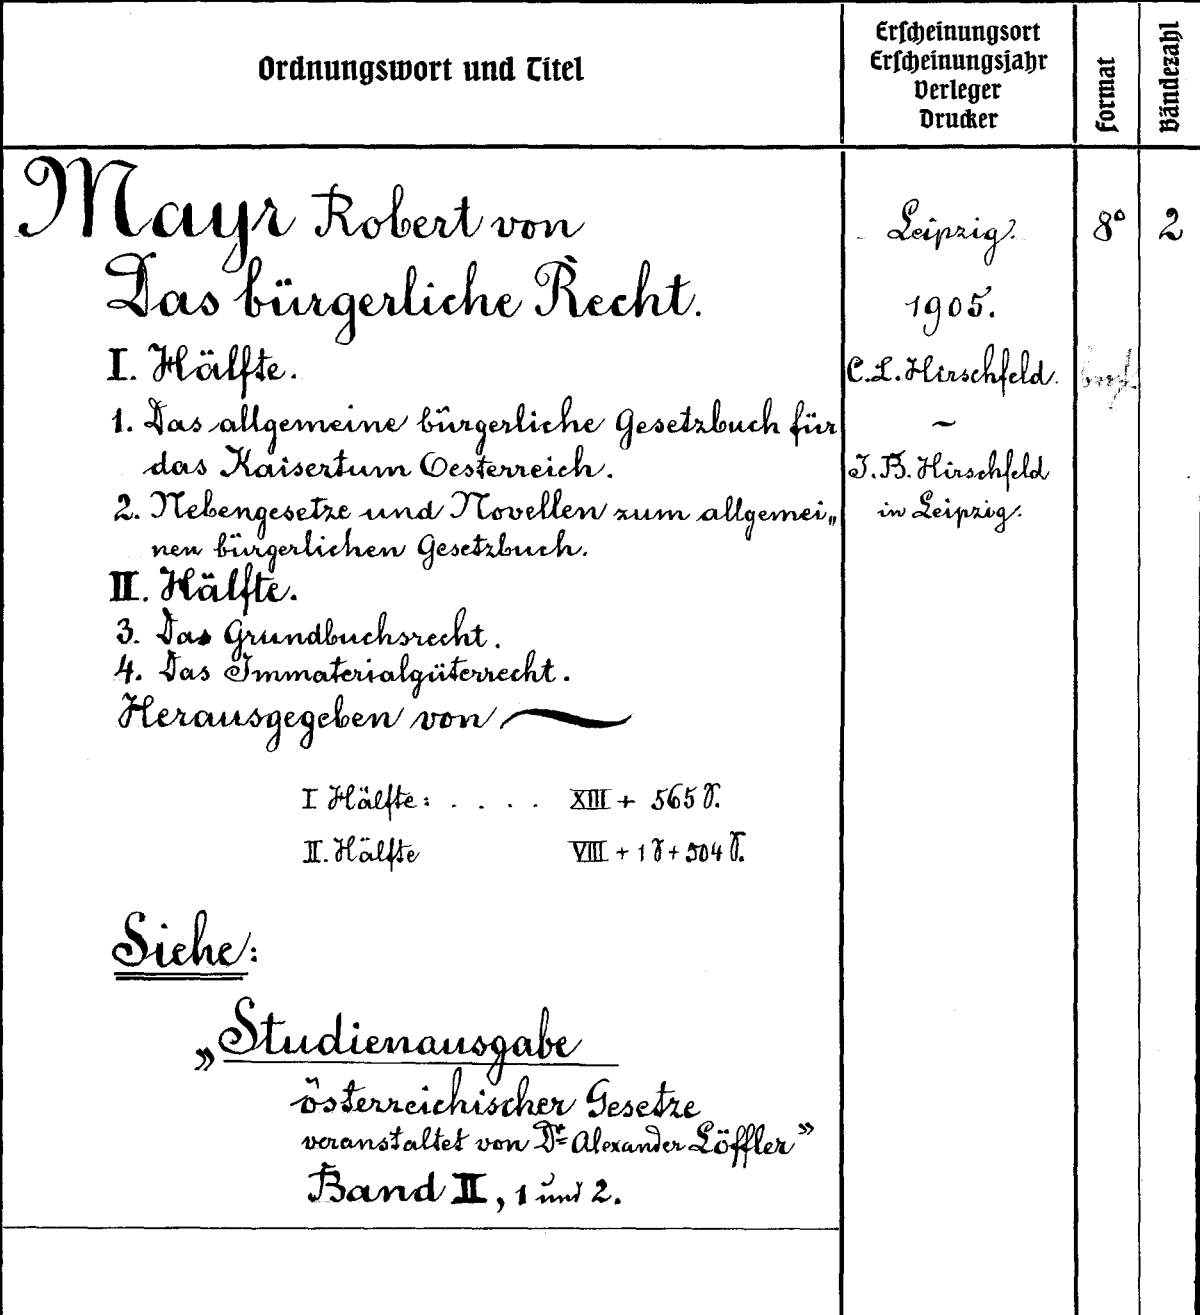 Ordnungswort und Titel
Erscheinungsort
Erscheinungsjahr
Verleger
Drucker
Format
Bändezahl
Mayr Robert von
Das bürgerliche Recht.
I. Hälfte.
1. Das allgemeine bürgerliche Gesetzbuch für
das Kaisertum Oesterreich.
2. Nebengesetze und Novellen zum allgemei„
nen bürgerlichen Gesetzbuch.
II. Hälfte.
3. Das Grundbuchsrecht.
4. Das Immaterialgüterrecht.
Herausgegeben von ~
I Hälfte: . . . . XIII + 565 S.
II. Hälfte VIII + 1 S + 504 S.
Siehe:
„Studienausgabe
österreichischer Gesetze
veranstaltet von Dr Alexander Löffler"
Band II, 1 und 2.
Leipzig.
1905.
C.L. Hirschfeld.
~
J.B. Hirschfeld
in Leipzig.
8°
2